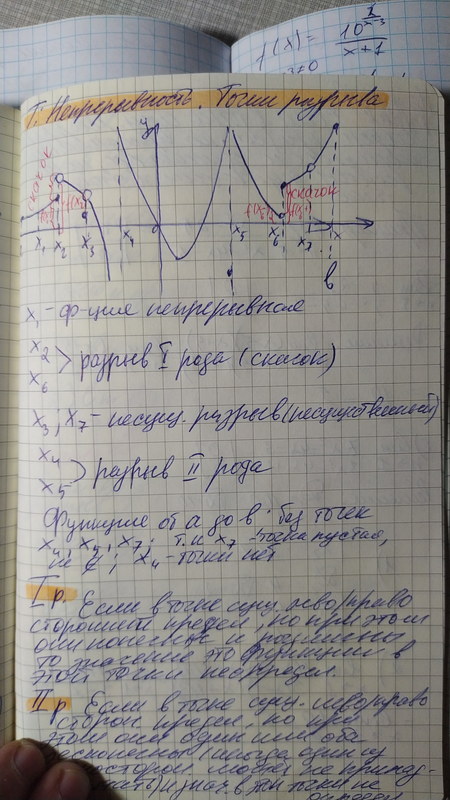 f(x) = 10^{1/(x-3)} / (x+1)
x→0
Т. Непрерывность. Точки разрыва
y
скачок
скачок
x₁ x₂ x₃ x₄ x₅ x₆ x₇ x
в
x₁ - ф-ция непрерывная
x₂
x₆ > разрыв I рода (скачок)
x₃; x₇ - несущ. разрыв (несущественный)
x₄
x₅ > разрыв II рода
Функция от а до в без точек
x₄, x₅, x₇; т.к x₇ - точка пустая,
не ; x₄ - точки нет
I р. Если в точке сущ. лево/право
сторонний предел, но при этом
они конечные и различны
то значение это функции в
этой точки неопредел.
II р Если в точке сущ. лево/право
сторон. предел, но при
этом они один или оба
бесконечны (иногда один из